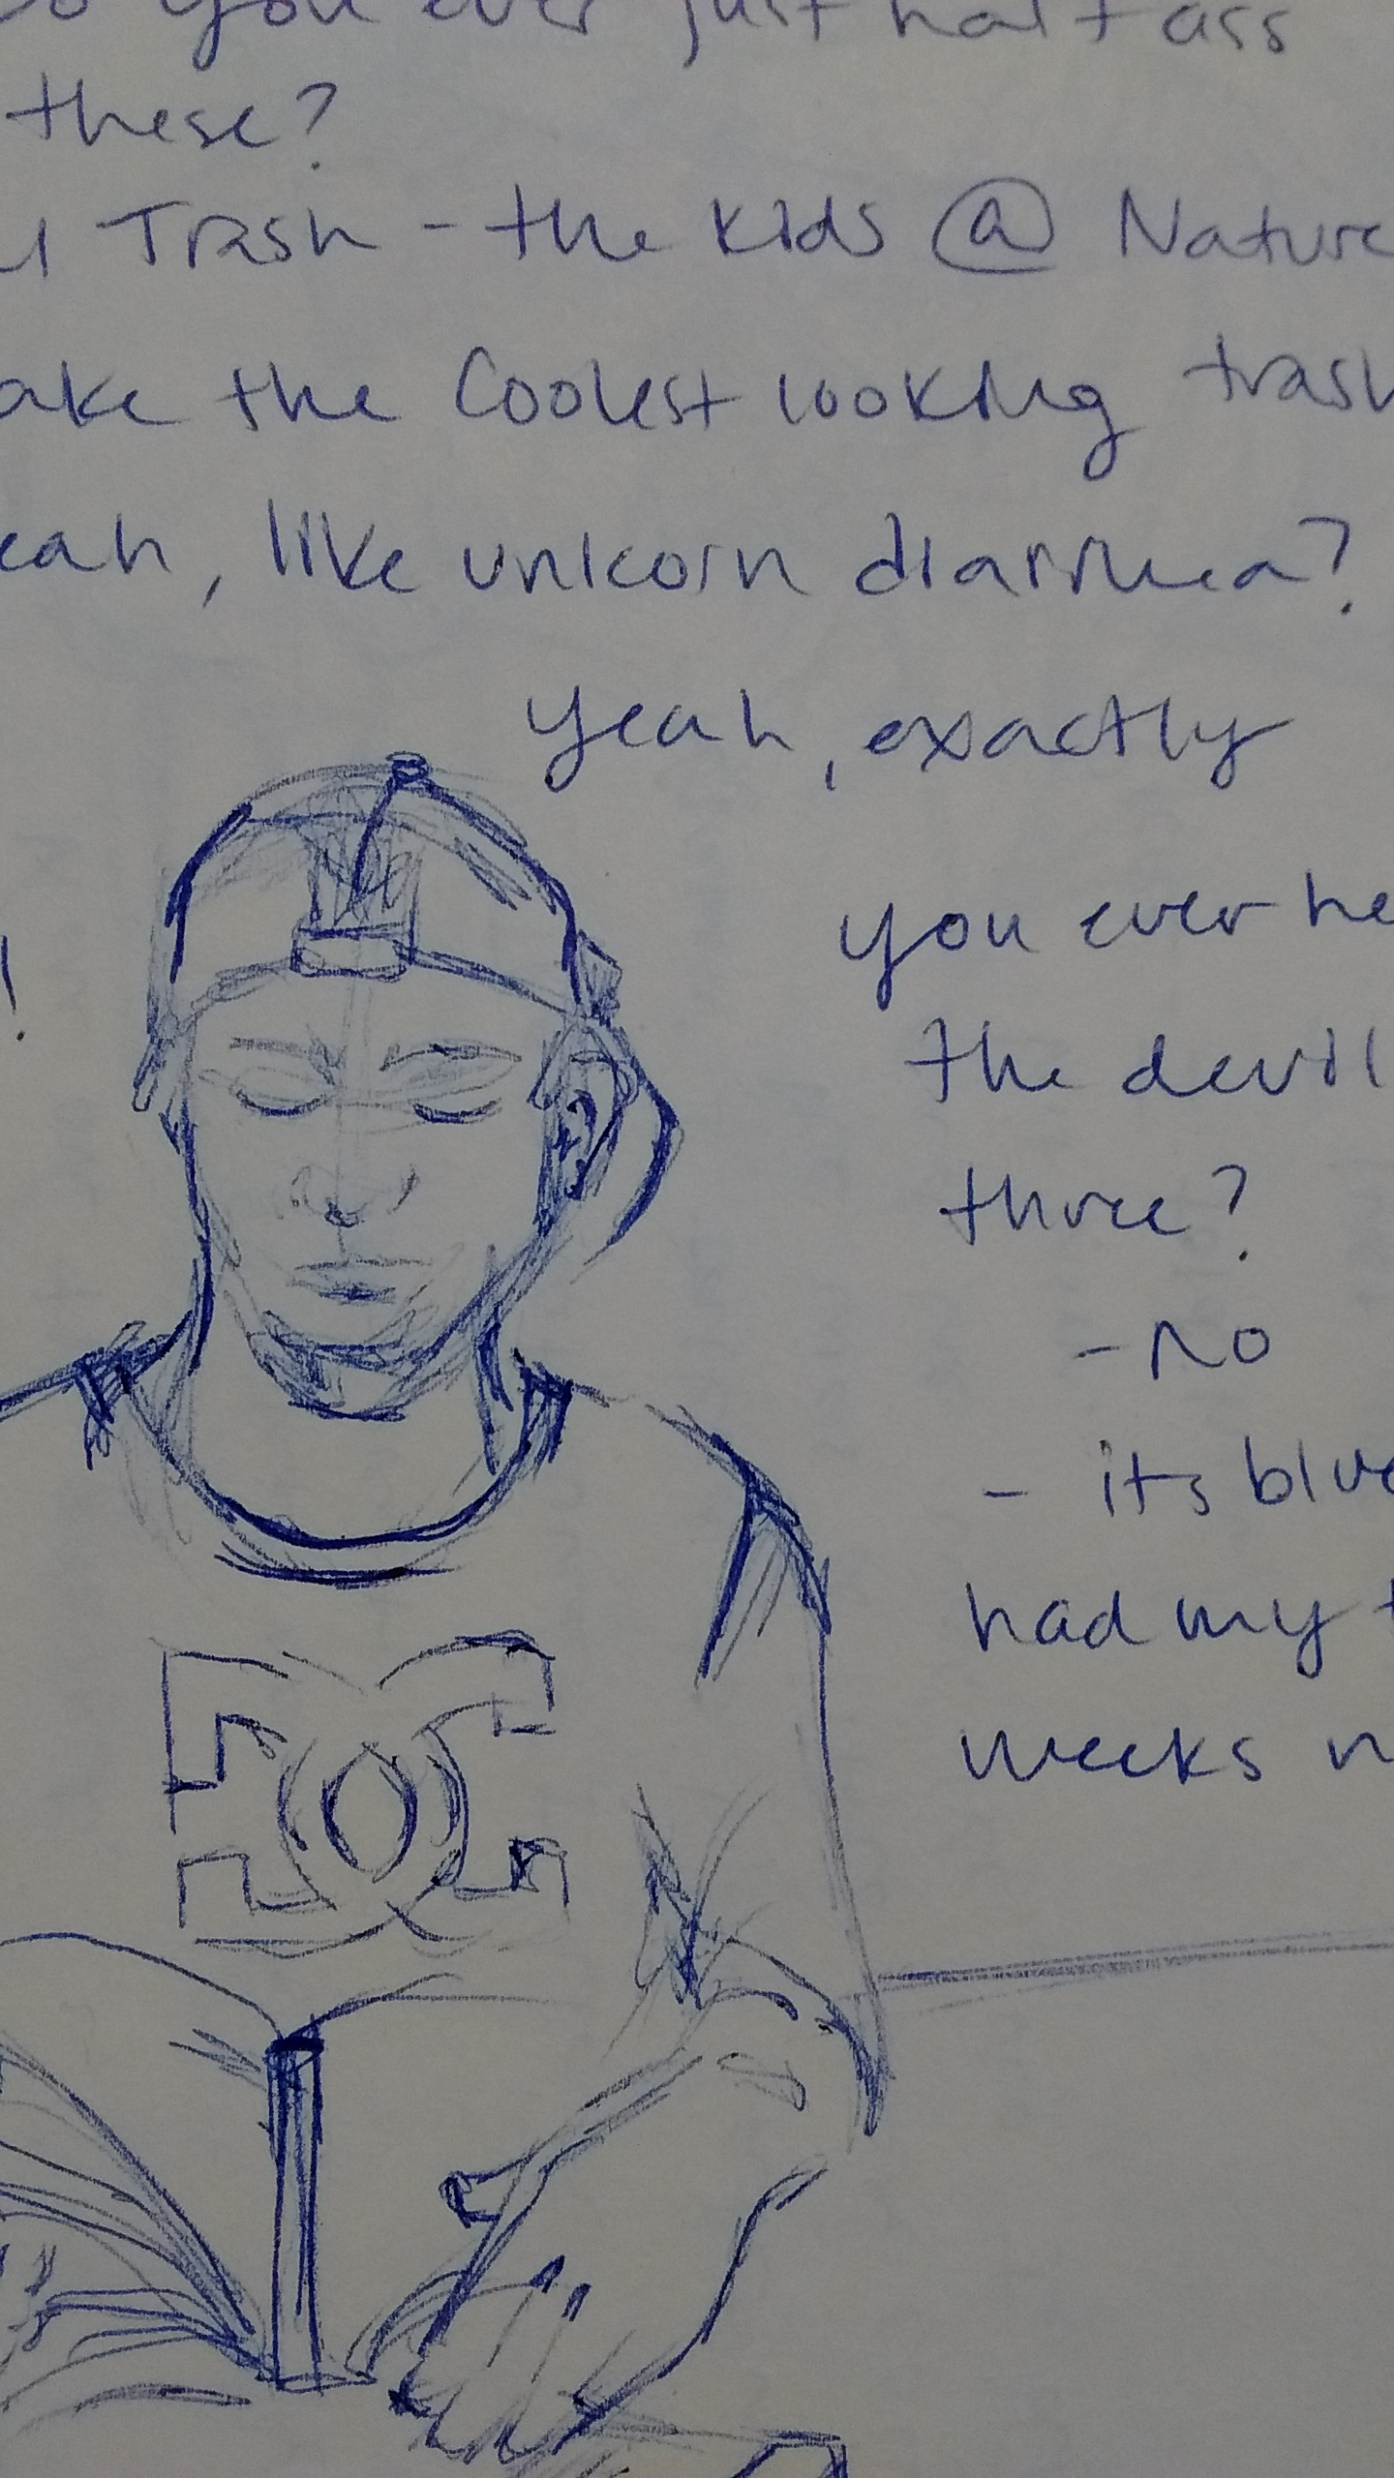 you ever just half ass
these?
Trash - the kids @ Nature
ake the Coolest looking trash
eah, like unicorn diarrhea?
yeah, exactly
you ever he
the devil
three?
- no
- its blue
had my t
weeks n